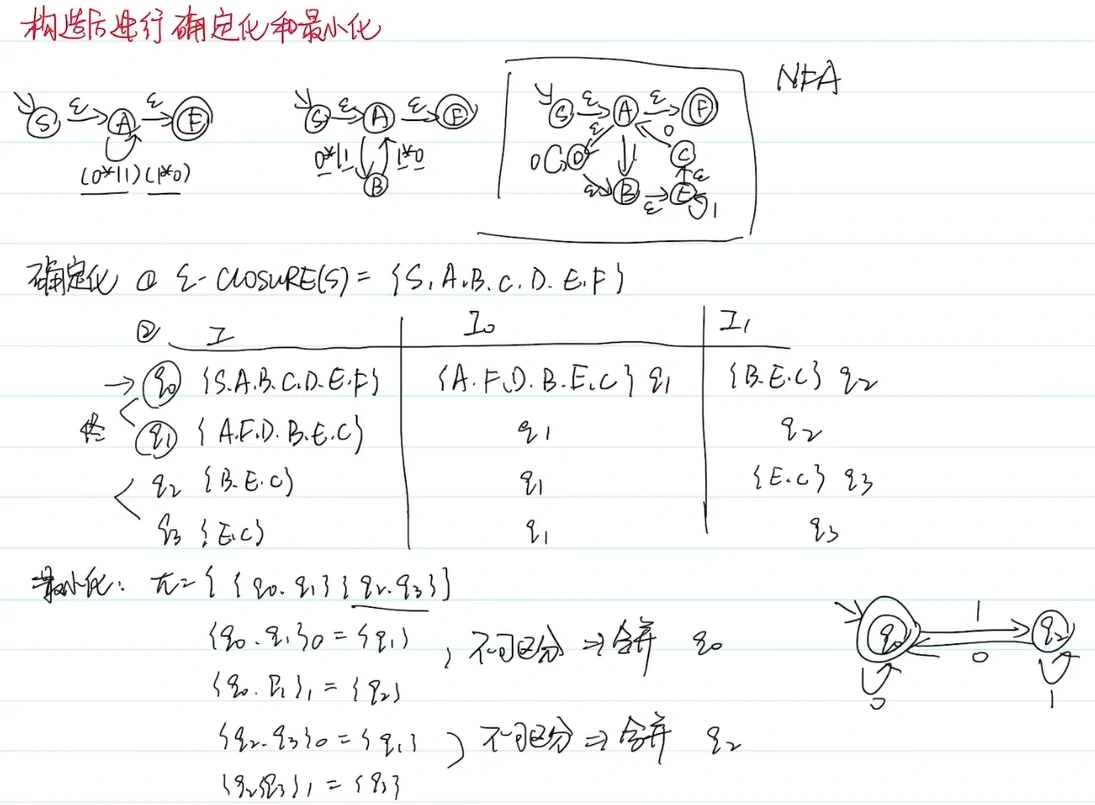 构造后进行确定化和最小化
NFA
S ε A ε F
(0*|1)(1*0)
S ε A ε F
0*|1 1*0
B
S ε A ε F
ε 0
0 D 1 C
ε B ε E ε 1
确定化 ① ε-CLOSURE(S) = {S.A.B.C.D.E.F}
② I I₀ I₁
→ q₀ {S.A.B.C.D.E.F} {A.F.D.B.E.C} q₁ {B.E.C} q₂
终 q₁ {A.F.D.B.E.C} q₁ q₂
q₂ {B.E.C} q₁ {E.C} q₃
q₃ {E.C} q₁ q₃
最小化: π={{q₀.q₁}{q₂.q₃}}
{q₀.q₁}₀={q₁}, 不可区分 ⇒ 合并 q₀
{q₀.q₁}₁={q₂}
{q₂.q₃}₀={q₁} 不可区分 ⇒ 合并 q₂
{q₂q₃}₁={q₃}
q₀ 1 q₂
0
0 1